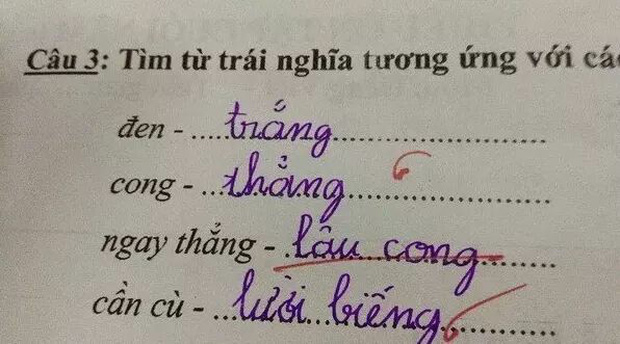 Câu 3: Tìm từ trái nghĩa tương ứng với các
đen - .....trắng..............................
cong - ...thẳng.............................
ngay thẳng - .lâu cong..........
cần cù - ...lười...biếng...............